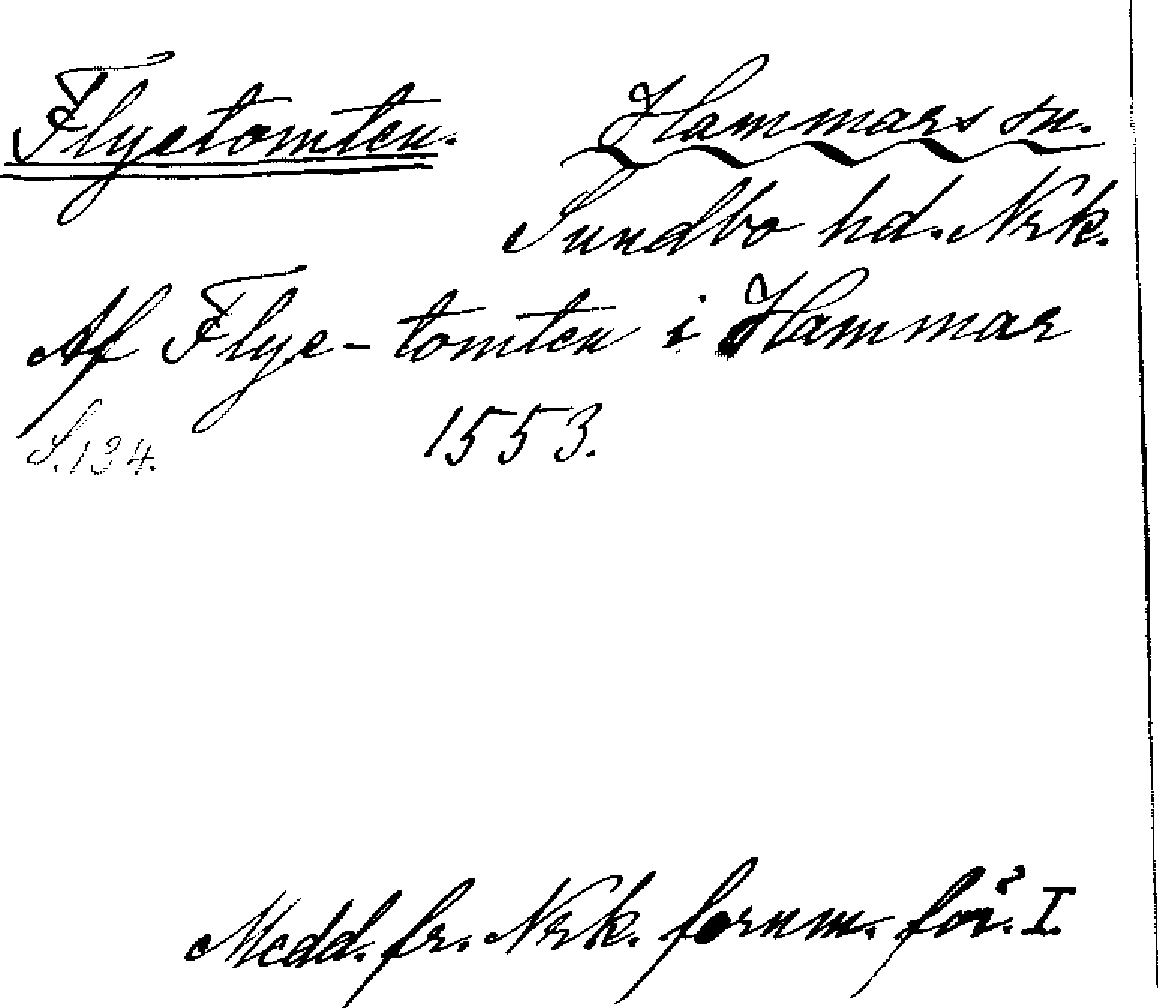 Flyetomten. Hammars sn.
Sundbo hd. Nrk.
Af Flye-tomten i Hammar
S. 134. 1553.
Medd. fr. Nrk. fornm. för. I.